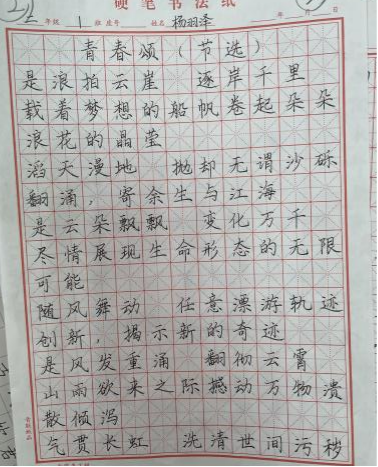 硬笔书法纸
年级 1 班 座号 姓名 杨羽泽 年 月 日
青春颂（节选）
是浪拍云崖 逐岸千里
载着梦想的船帆卷起朵朵
浪花的晶莹
滔天漫地 抛却无谓沙砾
翻涌，寄余生与江海
是云朵飘飘 变化万千
尽情展现生命形态的无限
可能
随风舞动 任意漂游轨迹
创新，揭示新的奇迹
是风发重涌 翻彻云霄
山雨欲来之际撼动万物溃
散倾泻
气贯长虹 洗清世间污秽